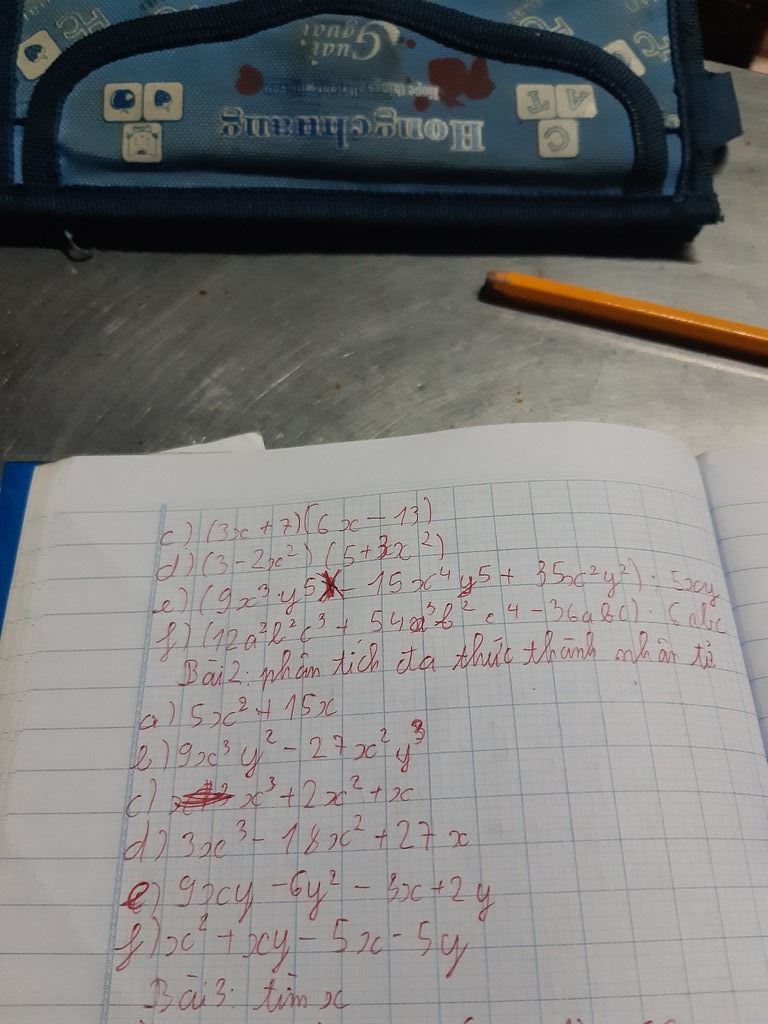 Guai
guai
Hope things all right with you
Hongchuang
C
A T
c) (3x + 7)(6x - 13)
d) (3 - 2x²) (5 + 3x²)
e) (9x³y⁵ - 15x⁴y⁵ + 35x²y²) : 5xy
f) (12a²b²c³ + 54a³b²c⁴ - 36abc) : 6abc
Bài 2: phân tích đa thức thành nhân tử
a) 5x² + 15x
b) 9x³y² - 27x²y³
c) x³ + 2x² + x
d) 3x³ - 18x² + 27x
e) 9xy - 6y² - 3x + 2y
f) x² + xy - 5x - 5y
Bài 3: tìm x